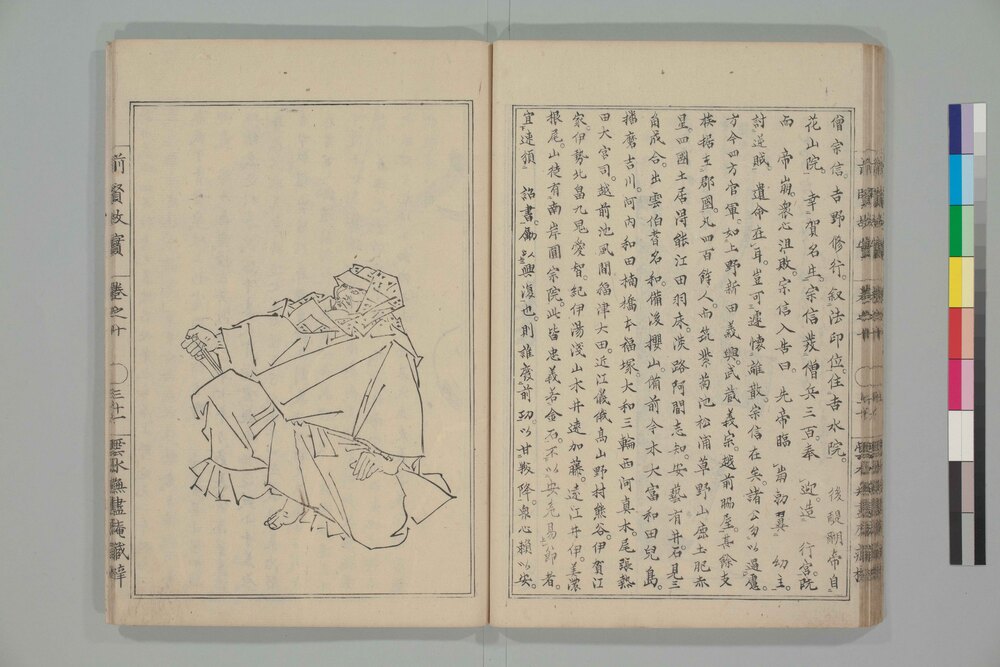 僧宗信。吉野修行。叙法印位。住吉水院。後醍醐帝自
花山院。幸賀名生。宗信發僧兵三百。奉迎。造行宮。既
而帝崩。衆心沮敗。宗信入告曰。先帝臨崩。勅翼幼主。
討逆賊。遺命在耳。豈可遽懷離散。宗信在矣。諸公勿以過慮。
方今四方官軍。如上野新田義興。武藏義宗。越前脇屋。其餘支
族據王郡國。凡四百餘人。而筑紫菊池松浦草野山鹿土肥赤
星。四國土居得能江田羽床。淡路阿間志知。安藝有井。石見三
角成合。出雲伯耆名和。備後櫻山。備前舍木大富和田兒島。
播磨吉川。河内和田楠橋本福塚。大和三輪西河真木。尾張熱
田大宮司。越前池風間稻津大田。近江儀俄高山野村熊谷。伊賀江
家。伊勢北畠九鬼愛智。紀伊湯淺山本井遠加藤。遠江井伊。美濃
根尾。山徒有南岸圓宗院。此皆忠義若金石。不以安危易節者。
宜速頒詔書。勵以興復也。則誰廢前功。以甘叛降。衆心賴以安。
前賢故實
卷之十
三十一
雲水無盡庵藏梓